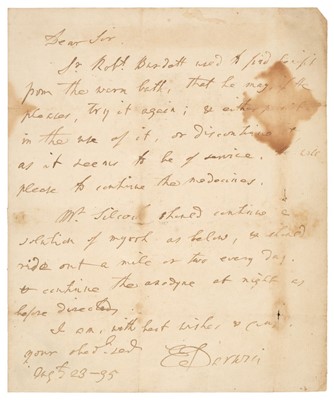 Dear Sir.
Sr. Robt. Burdett used to find
from the warm bath, that he may, if he
pleases, try it again; & either
in the use of it, or discontinue
as it seems to be of service.
please to continue the medecines.
Mr. Silcock should continue a
solution of myrrh as below, & should
ride out a mile or two every day.
& continue the anodyne at night as
before directed.
I am, with best wishes &
your obed. ser.
E Darwin
Augt 23-95